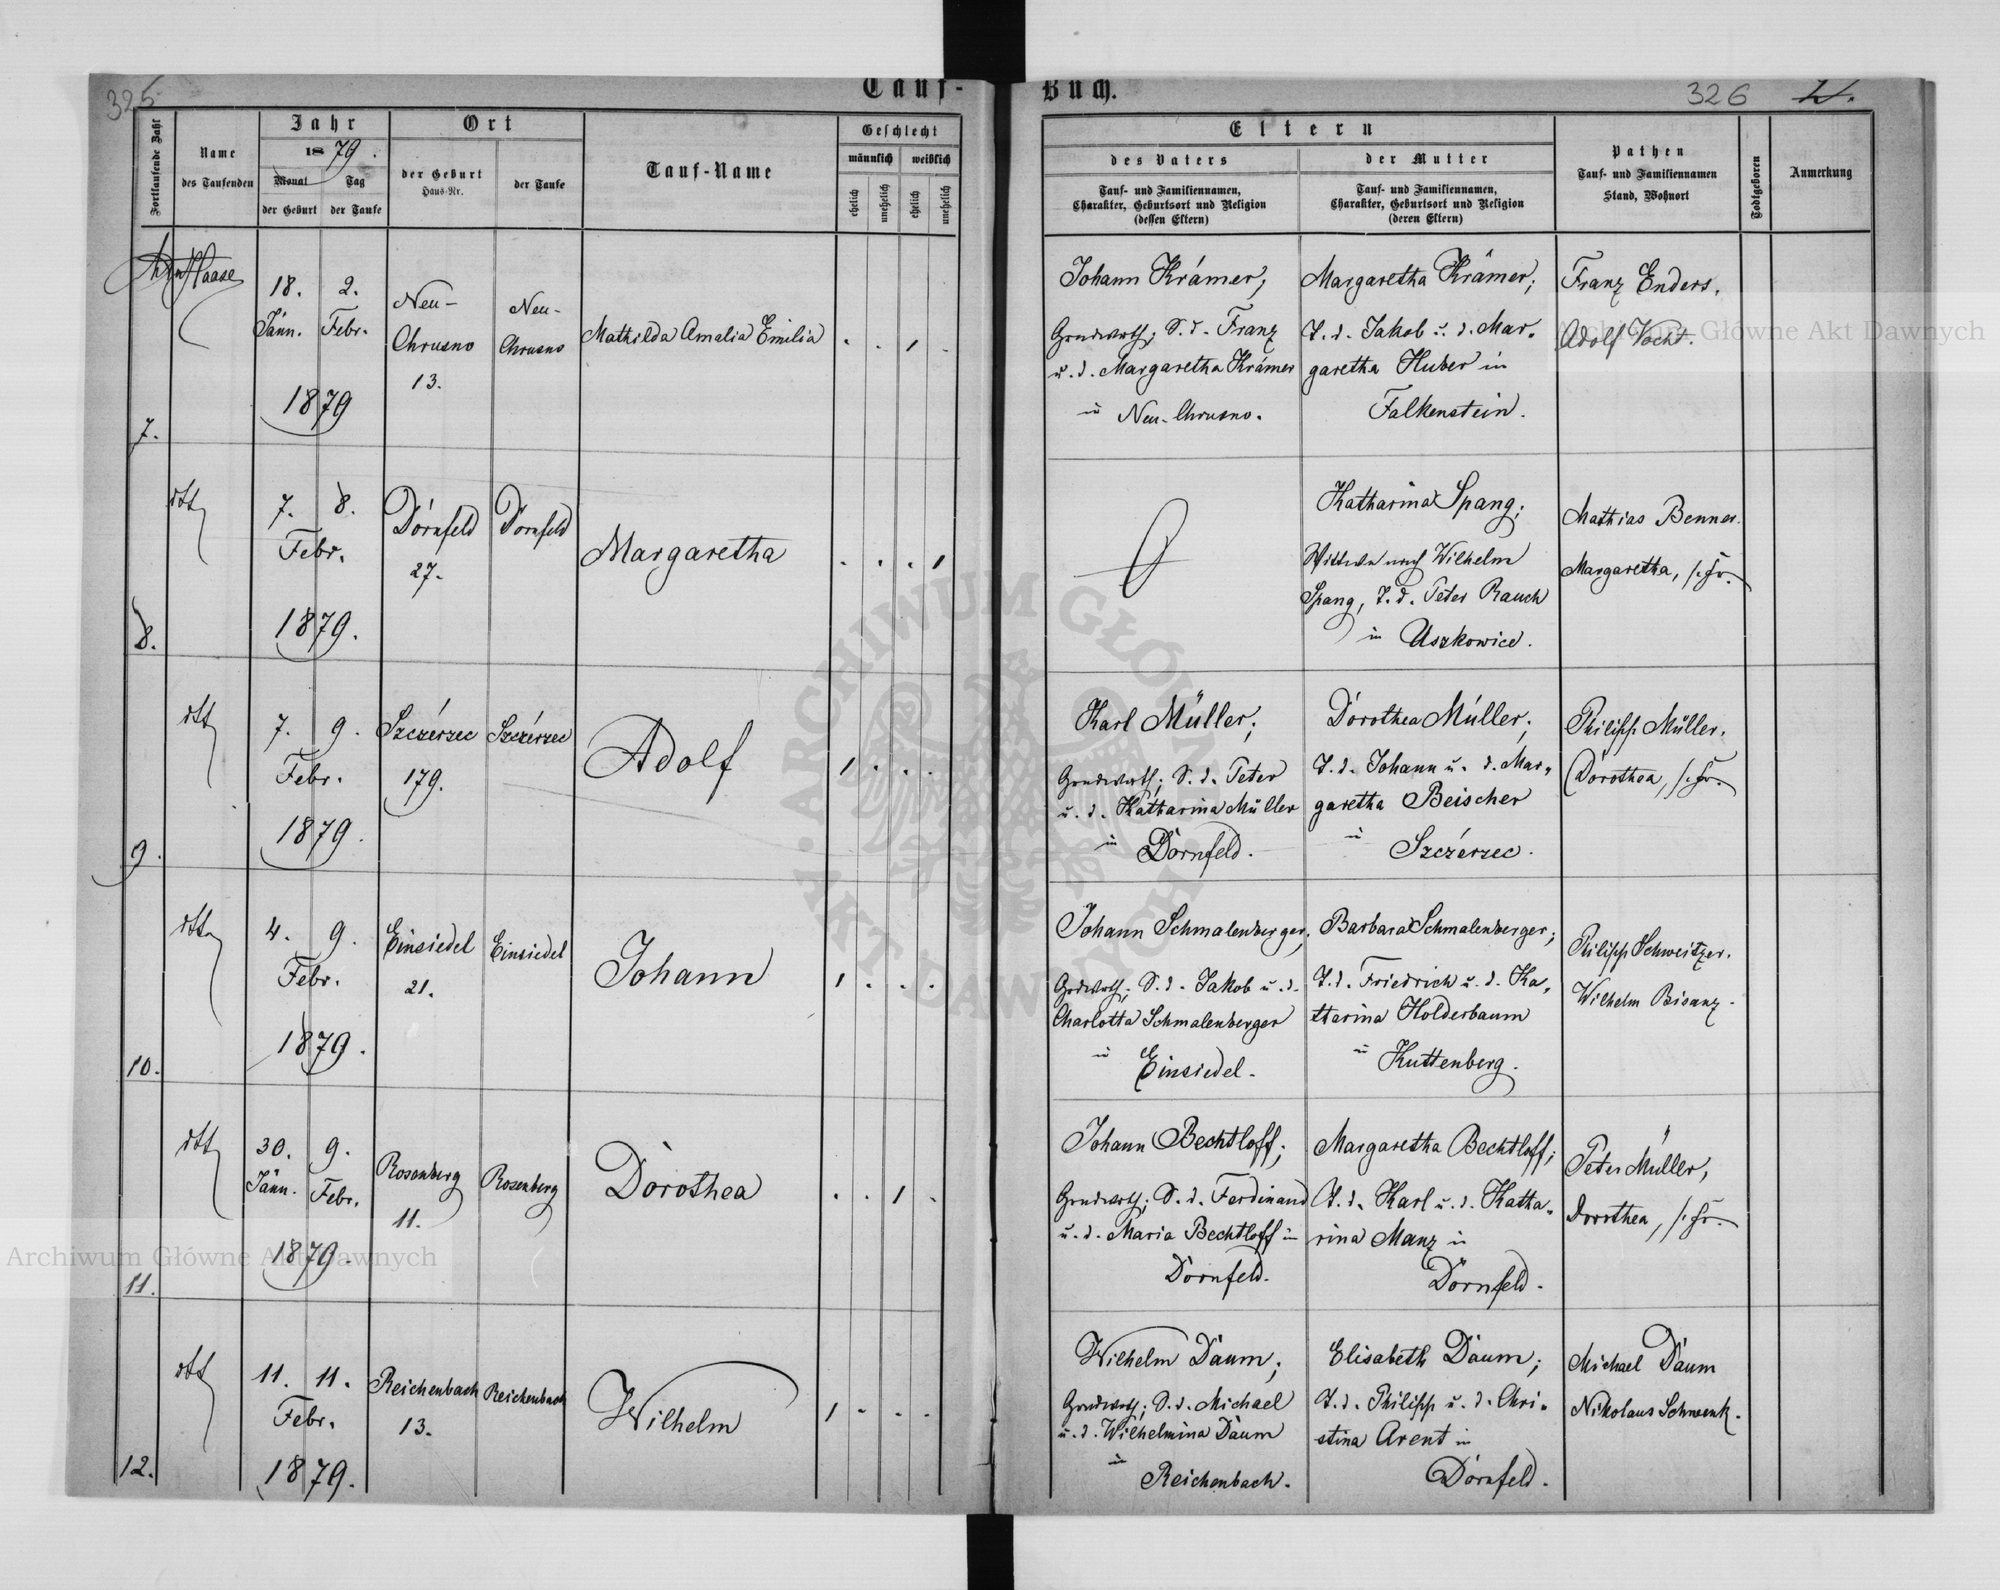 325
Tauf-
Buch.
326
Fortlaufende Zahl
Name
des Taufenden
Jahr
1879.
Monat
Tag
der Geburt
der Taufe
Ort
der Geburt
Haus-Nr.
der Taufe
Tauf-Name
Geschlecht
männlich
weiblich
ehelich
unehelich
ehelich
unehelich
Eltern
des Vaters
Tauf- und Familiennamen,
Charakter, Geburtsort und Religion
(dessen Eltern)
der Mutter
Tauf- und Familiennamen,
Charakter, Geburtsort und Religion
(deren Eltern)
Pathen
Tauf- und Familiennamen
Stand, Wohnort
Todtgeboren
Anmerkung
7.
Haase
18. 2.
Jänn. Febr.
1879
Neu-
Chrusno
13.
Neu-
Chrusno
Mathilda Amalia Emilia
Johann Krämer,
Grundwrth; S. d. Franz
u. d. Margaretha Krämer
in Neu-Chrusno.
Margaretha Krämer;
T. d. Jakob u. d. Mar-
garetha Huber in
Falkenstein.
Franz Enders.
Adolf Vocht.
8.
dtt
7. 8.
Febr.
1879.
Dornfeld
27.
Dornfeld
Margaretha
Katharina Spang;
Wittwe nach Wilhelm
Spang, T. d. Peter Rauch
in Uszkowice.
Mathias Benner.
Margaretha, s. Fr.
9.
dtt
7. 9.
Febr.
1879.
Szczerzec
179.
Szczerzec
Adolf
Karl Müller;
Grundwrth; S. d. Peter
u. d. Katharina Müller
in Dornfeld.
Dorothea Müller;
T. d. Johann u. d. Mar-
garetha Beischer
in
Szczerzec.
Philipp Müller.
Dorothea, s. Fr.
10.
dtto
4. 9.
Febr.
1879.
Einsiedel
21.
Einsiedel
Johann
Johann Schmalenberger;
Grdwrth; S. d. Jakob u. d.
Charlotta Schmalenberger
in
Einsiedel.
Barbara Schmalenberger;
T. d. Friedrich u. d. Ka-
tharina Holderbaum
in
Kuttenberg.
Philipp Schweitzer.
Wilhelm Bisanz.
11.
dtt
30. 9.
Jänn. Febr.
1879.
Rosenberg
11.
Rosenberg
Dorothea
Johann Bechtloff;
Grundwrth; S. d. Ferdinand
u. d. Maria Bechtloff in
Dornfeld.
Margaretha Bechtloff;
T. d. Karl u. d. Katha-
rina Manz in
Dornfeld.
Peter Müller,
Dorothea, s. Fr.
12.
dtt
11. 11.
Febr.
1879.
Reichenbach
13.
Reichenbach
Wilhelm
Wilhelm Daum;
Grundwrth; S. d. Michael
u. d. Wilhelmina Daum
in
Reichenbach.
Elisabeth Daum;
T. d. Philipp u. d. Chri-
stina Arent in
Dornfeld.
Michael Daum
Nikolaus Schwenk.
Archiwum Główne Akt Dawnych
Archiwum Główne Akt Dawnych
ARCHIWUM GŁÓWNE AKT DAWNYCH